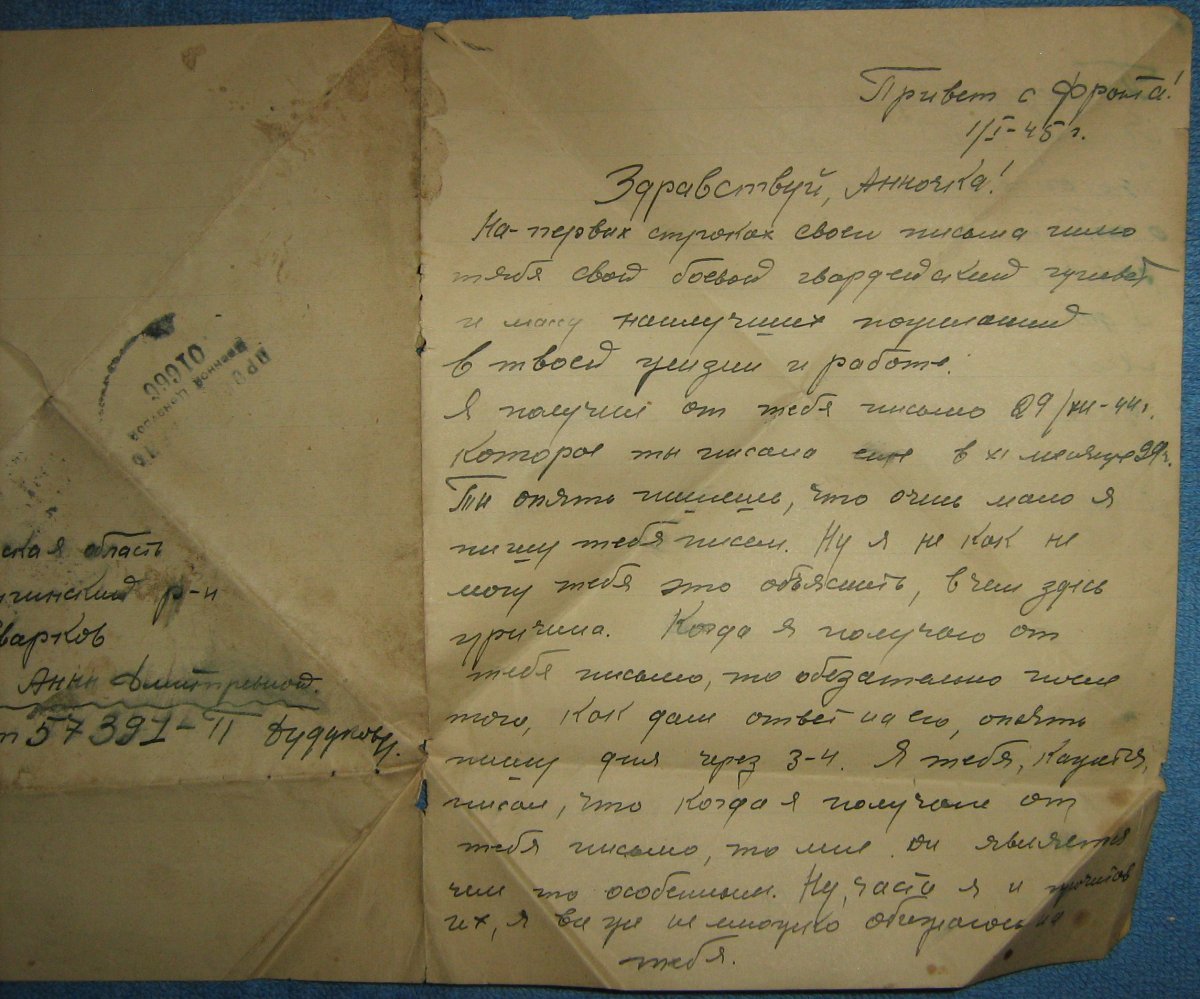 Привет с фронта!
1/I-45 г.
Здравствуй, Анночка!
На-первых строках своем письма
тябя свой боевой гвардейский
и массу наилучших пожеланий
в твоей жизни и работе.
Я получил от тебя письмо 29/XII-44г.
Которое ты писала еще в XI месяце
Ты опять пишешь, что очень мало я
пишу тебя писем. Ну я не как не
могу тебя это объяснить, в чем здесь
причина. Когда я получаю от
тебя письмо, то обезательно после
того, как дам ответ на его, опять
пишу дня через 3-4. Я тебя, кажется,
писал, что когда я получаю от
тебя письмо, то мне он является
чем то особенным. Ну, часто я и прочитав
их, я все же не множко обежаюсь на
тебя.
ПРО
Военной Цензурой
01666
ская область
гинский р-н
варков
Анны Дмитревной.
57391-II Дудуков